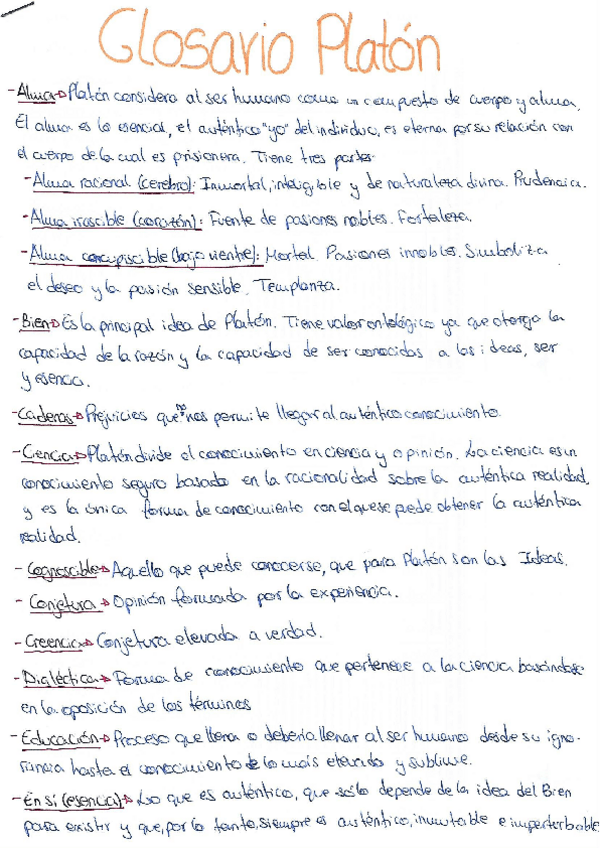 Glosario Platón
-Alma→Platón considera al ser humano como un compuesto de cuerpo y alma.
El alma es lo esencial, el auténtico "yo" del individuo, es eterna por su relación con
el cuerpo de la cual es prisionera. Tiene tres partes:
-Alma racional (cerebro): Inmortal, inteligible y de naturaleza divina. Prudencia.
-Alma irascible (corazón): Fuente de pasiones nobles. Fortaleza.
-Alma concupiscible (bajo vientre): Mortal. Pasiones innobles. Simboliza
el deseo y la pasión sensible. Templanza.
-Bien→Es la principal idea de Platón. Tiene valor ontológico ya que otorga la
capacidad de la razón y la capacidad de ser conocidas a las ideas, ser
y esencia.
-Cadenas→Prejuicios que no nos permite llegar al auténtico conocimiento.
-Ciencia→Platón divide el conocimiento en ciencia y opinión. La ciencia es un
conocimiento seguro basado en la racionalidad sobre la auténtica realidad,
y es la única forma de conocimiento con el que se puede obtener la auténtica
realidad.
-Cognoscible→Aquello que puede conocerse, que para Platón son las Ideas.
-Conjetura→Opinión formada por la experiencia.
-Creencia→Conjetura elevada a verdad.
-Dialéctica→Forma de conocimiento que pertenece a la ciencia basándose
en la oposición de los términos
-Educación→Proceso que llena o debería llenar al ser humano desde su igno-
rancia hasta el conocimiento de lo más elevado y sublime.
-En sí (esencia)→Lo que es auténtico, que sólo depende de la idea del Bien
para existir y que, por lo tanto, siempre es auténtico, inmutable e imperturbable